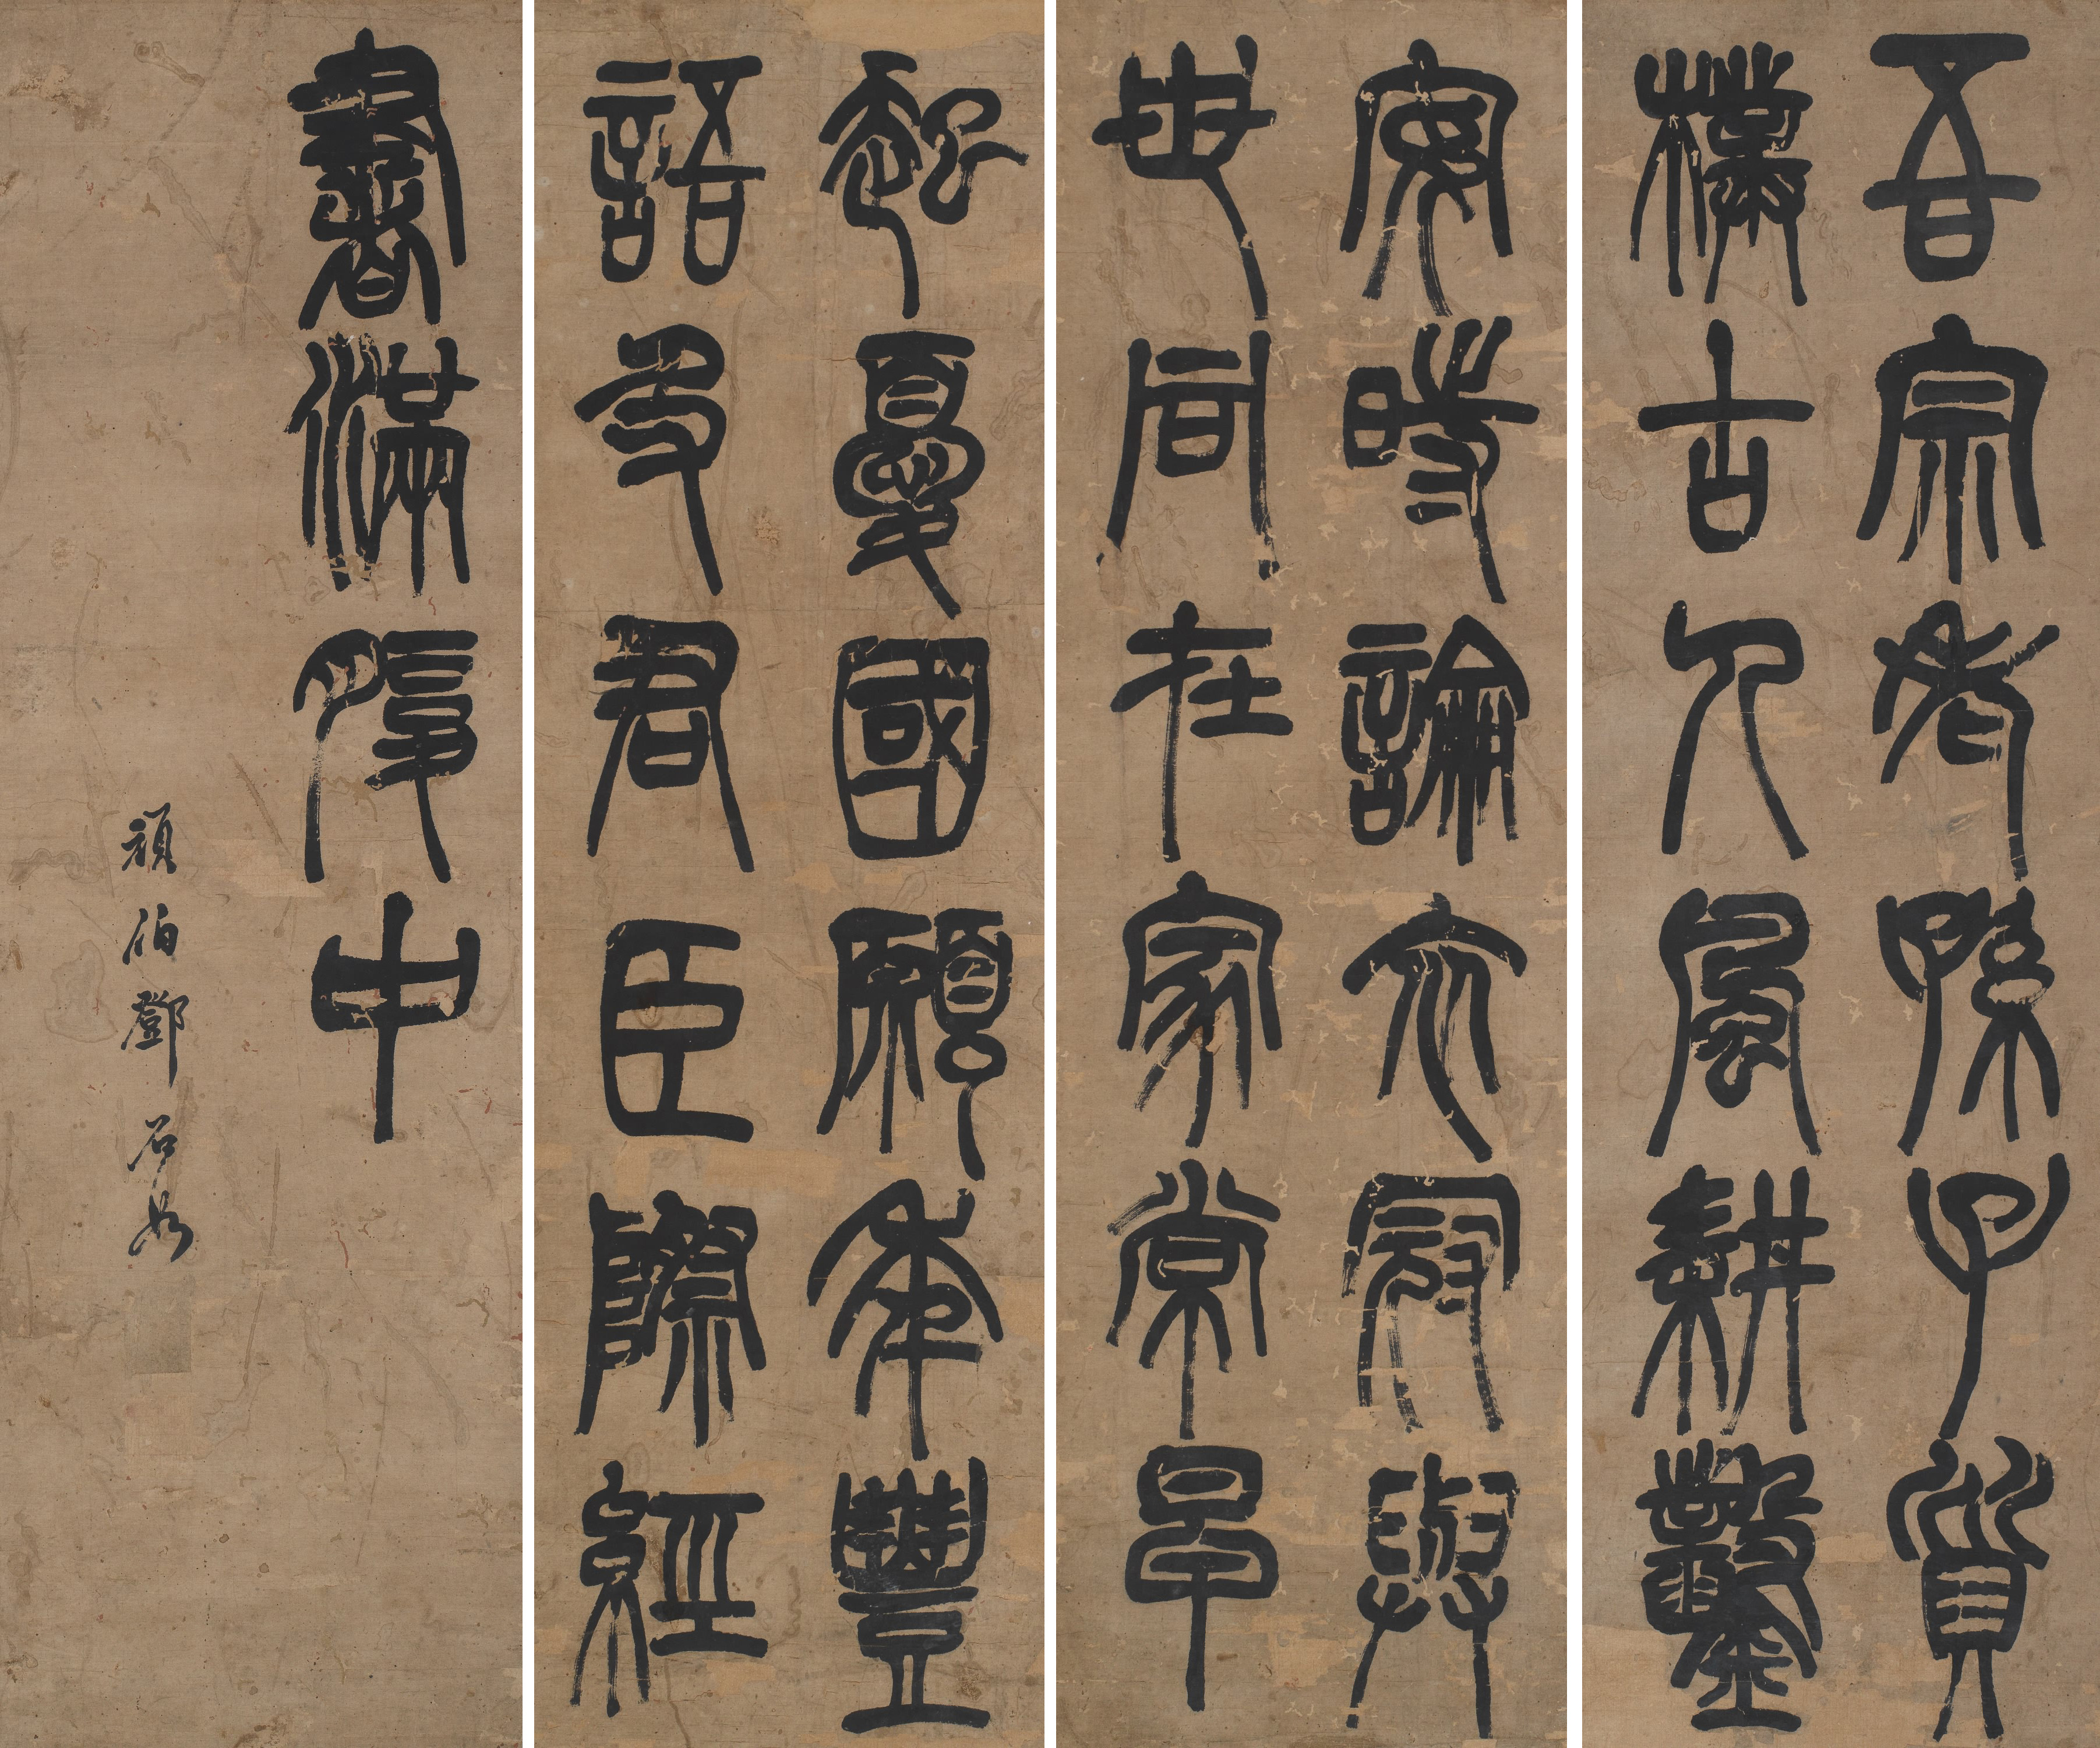 吾宗老孫子質
樸古人風耕鑿
安時論衣冠與
世同在家常早
起憂國願年豐
語及君臣際經
書滿腹中
頑伯鄧石如